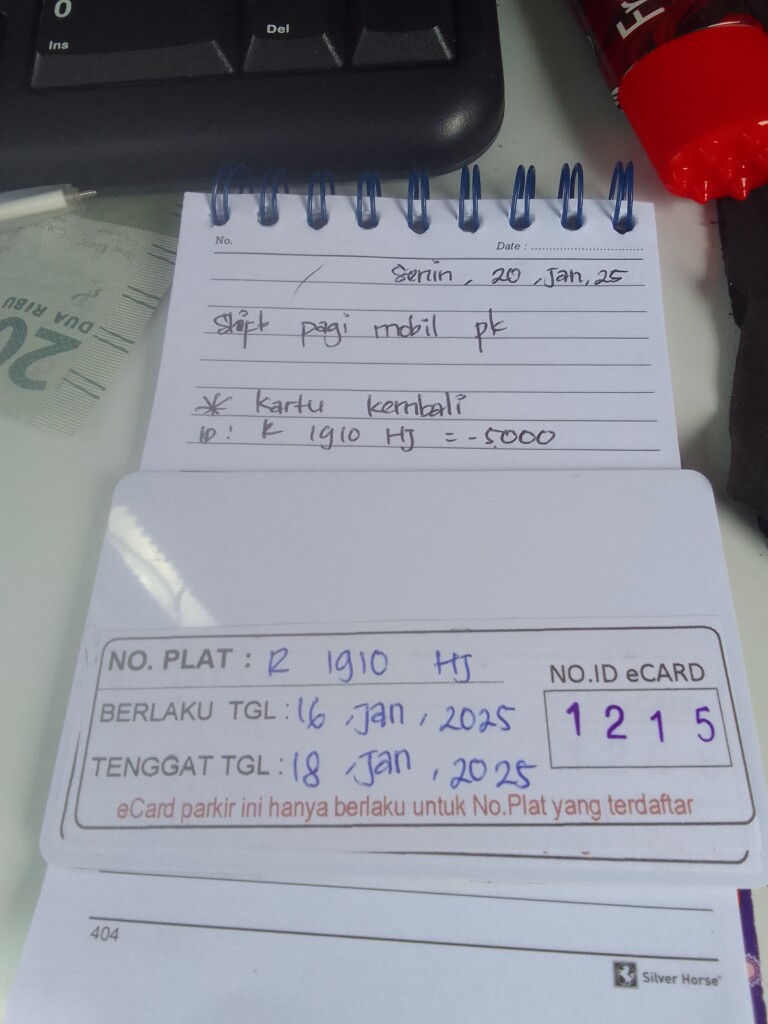 0
Ins
Del
Fr
DUA RIBU
20
No.
Date : ................................
Senin, 20, Jan, 25
Shift pagi mobil pk
* Kartu kembali
ip: R 1910 HJ = -5.000
NO. PLAT : R 1910 HJ
NO.ID eCARD
1215
BERLAKU TGL : 16, Jan, 2025
TENGGAT TGL : 18, Jan, 2025
eCard parkir ini hanya berlaku untuk No.Plat yang terdaftar
404
Silver Horse